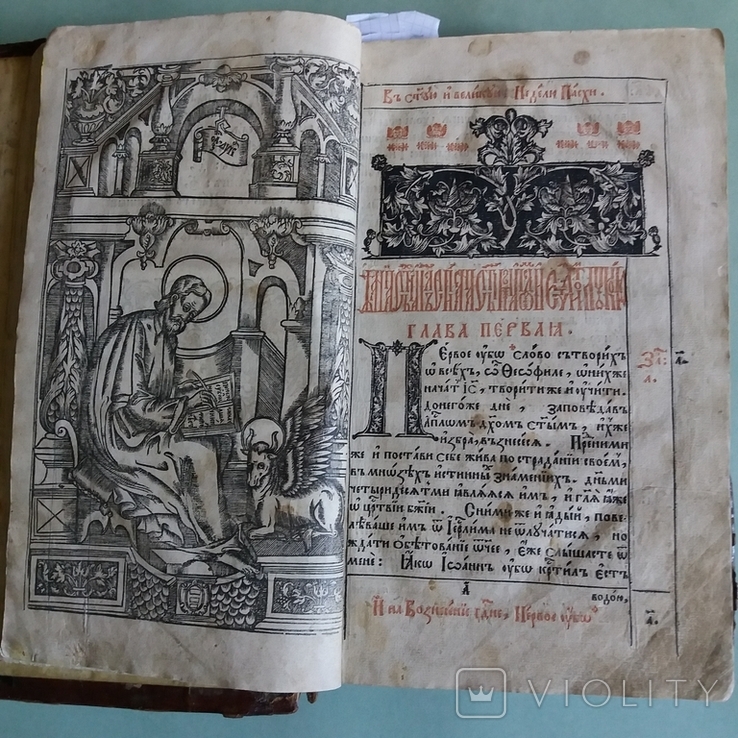 Въ ст҃ую и великую Недѣлю Пасхи.
ГЛАВА ПЕРВАꙖ.
Первое оубѡ слово сътворихъ
ѡ всѣхъ, ѽ Ѳеофиле, ѡ нихже
начатъ Іс҃, творити же и оучити.
донегоже дне, заповѣдавъ
ап҃лѡмъ дх҃омъ ст҃ымъ, ихже
избра, възнесеся. Пред ними
же и постави себе жива по страданїи своемъ,
въ мнѡзѣхъ истинныхъ знаменїихъ. дньми
четыридесѧтми ꙗвлѧѧсѧ имъ, и гл҃ѧ ꙗже
ѡ црⷭ҇твїи бж҃їи. Сними же и ꙗдый, пове-
лѣваше имъ ѿ Іер҃лима не ѿлучатисѧ, но
ждати обѣтованїе ѿч҃ее, еже слышасте ѿ
мене: Ꙗкѡ Іѡаннъ оубѡ кр҃тилъ естъ
водою,
И на Вознесенїе гдⷭ҇не, Первое оубѡ
За҃:
а.
VIOLITY